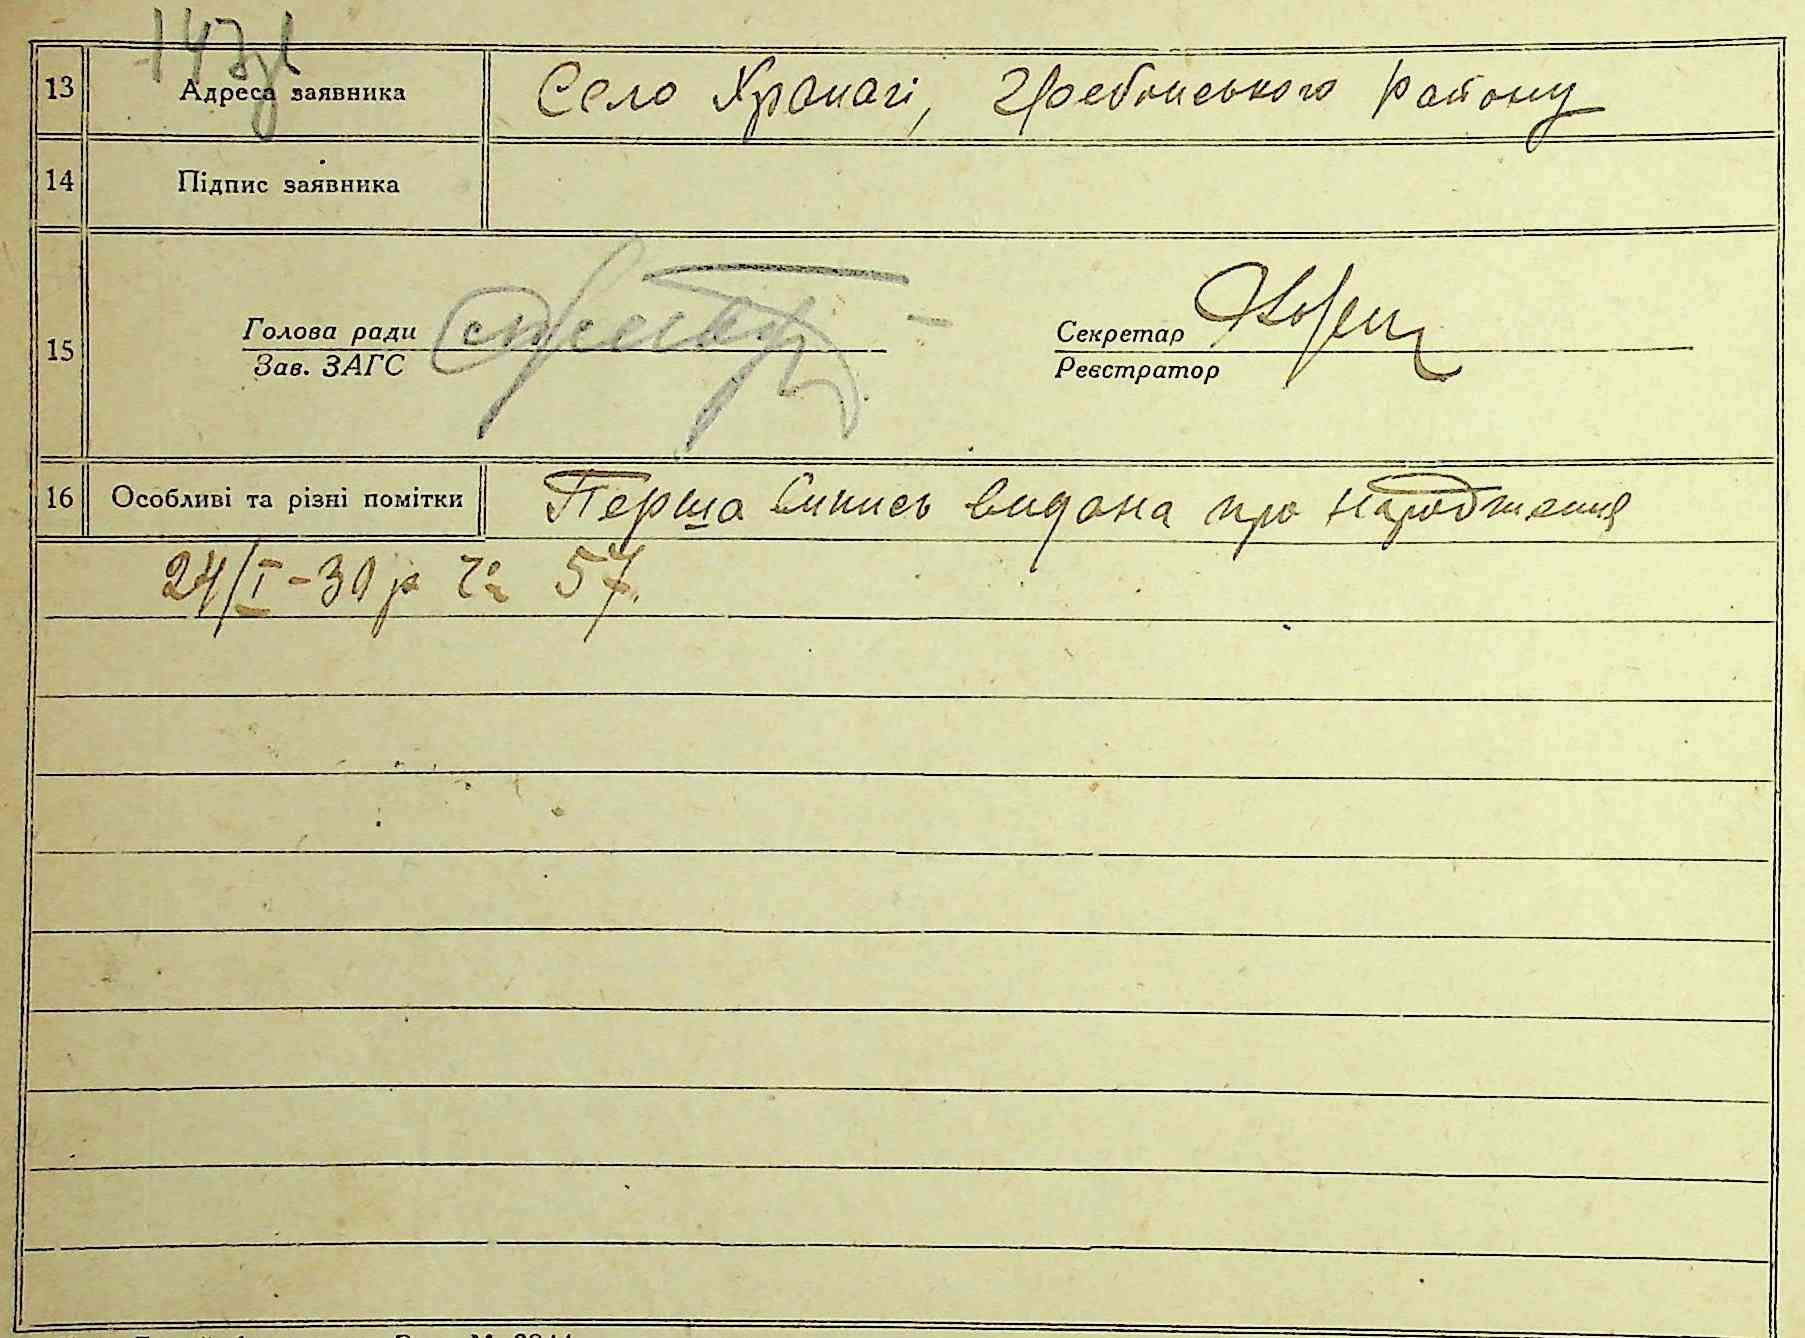 147
13 Адреса заявника Село Храпачі, району
14 Підпис заявника
15 Голова ради
Зав. ЗАГС
Секретар
Реєстратор
16 Особливі та різні помітки Перша випись видана про народження
24/I-30 р 57.